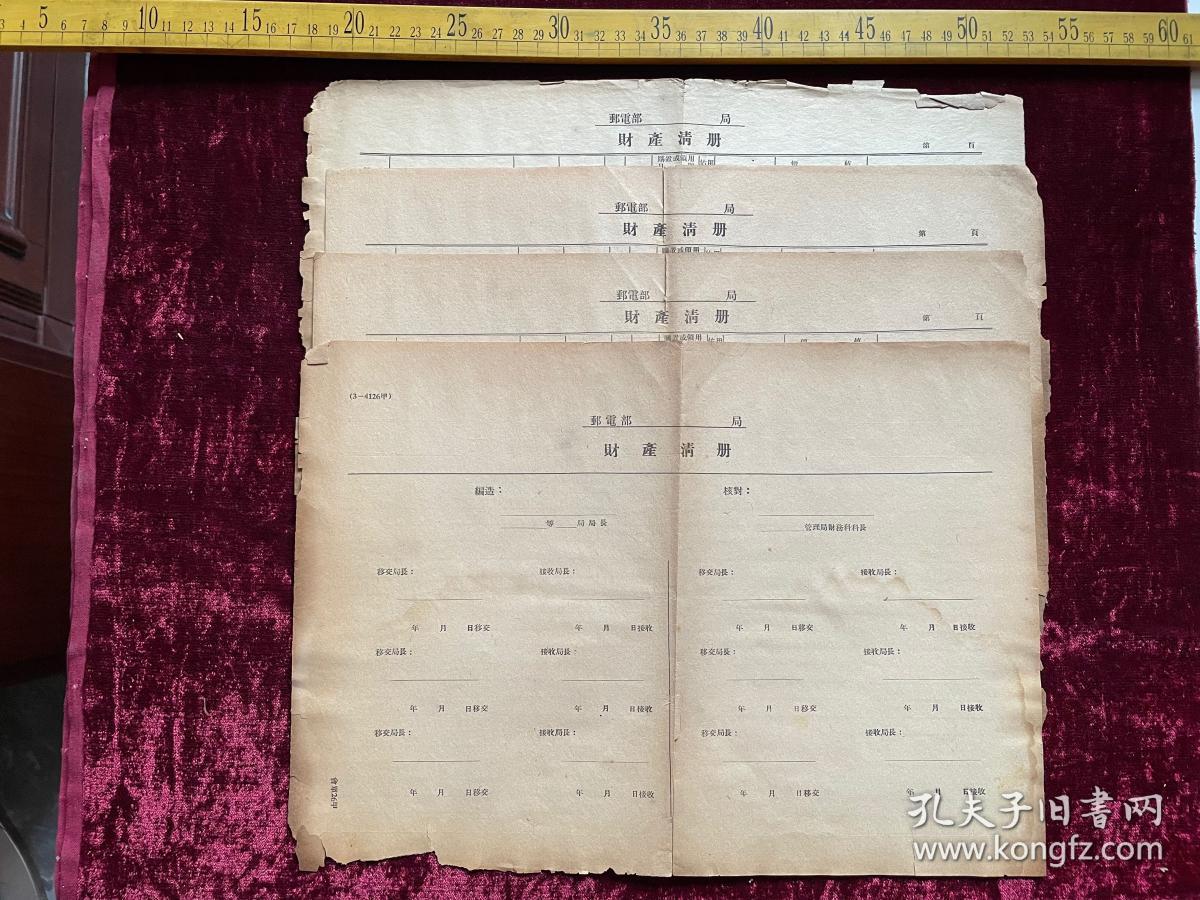 3 4 5 6 7 8 9 10 11 12 13 14 15 16 17 18 19 20 21 22 23 24 25 26 27 28 29 30 31 32 33 34 35 36 37 38 39 40 41 42 43 44 45 46 47 48 49 50 51 52 53 54 55 56 57 58 59 60 61
郵電部 局
財產清册
第 頁
購置或領用
郵電部 局
財產清册
第 頁
郵電部 局
財產清册
第 頁
(3—4126甲)
郵電部 局
財產清册
編造： 核對：
等 局局長 管理局財務科科長
移交局長： 接收局長： 移交局長： 接收局長：
年 月 日移交 年 月 日接收 年 月 日移交 年 月 日接收
移交局長： 接收局長： 移交局長： 接收局長：
年 月 日移交 年 月 日接收 年 月 日移交 年 月 日接收
移交局長： 接收局長： 移交局長： 接收局長：
年 月 日移交 年 月 日接收 年 月 日移交 年 月 日接收
孔夫子旧書网
www.kongfz.com